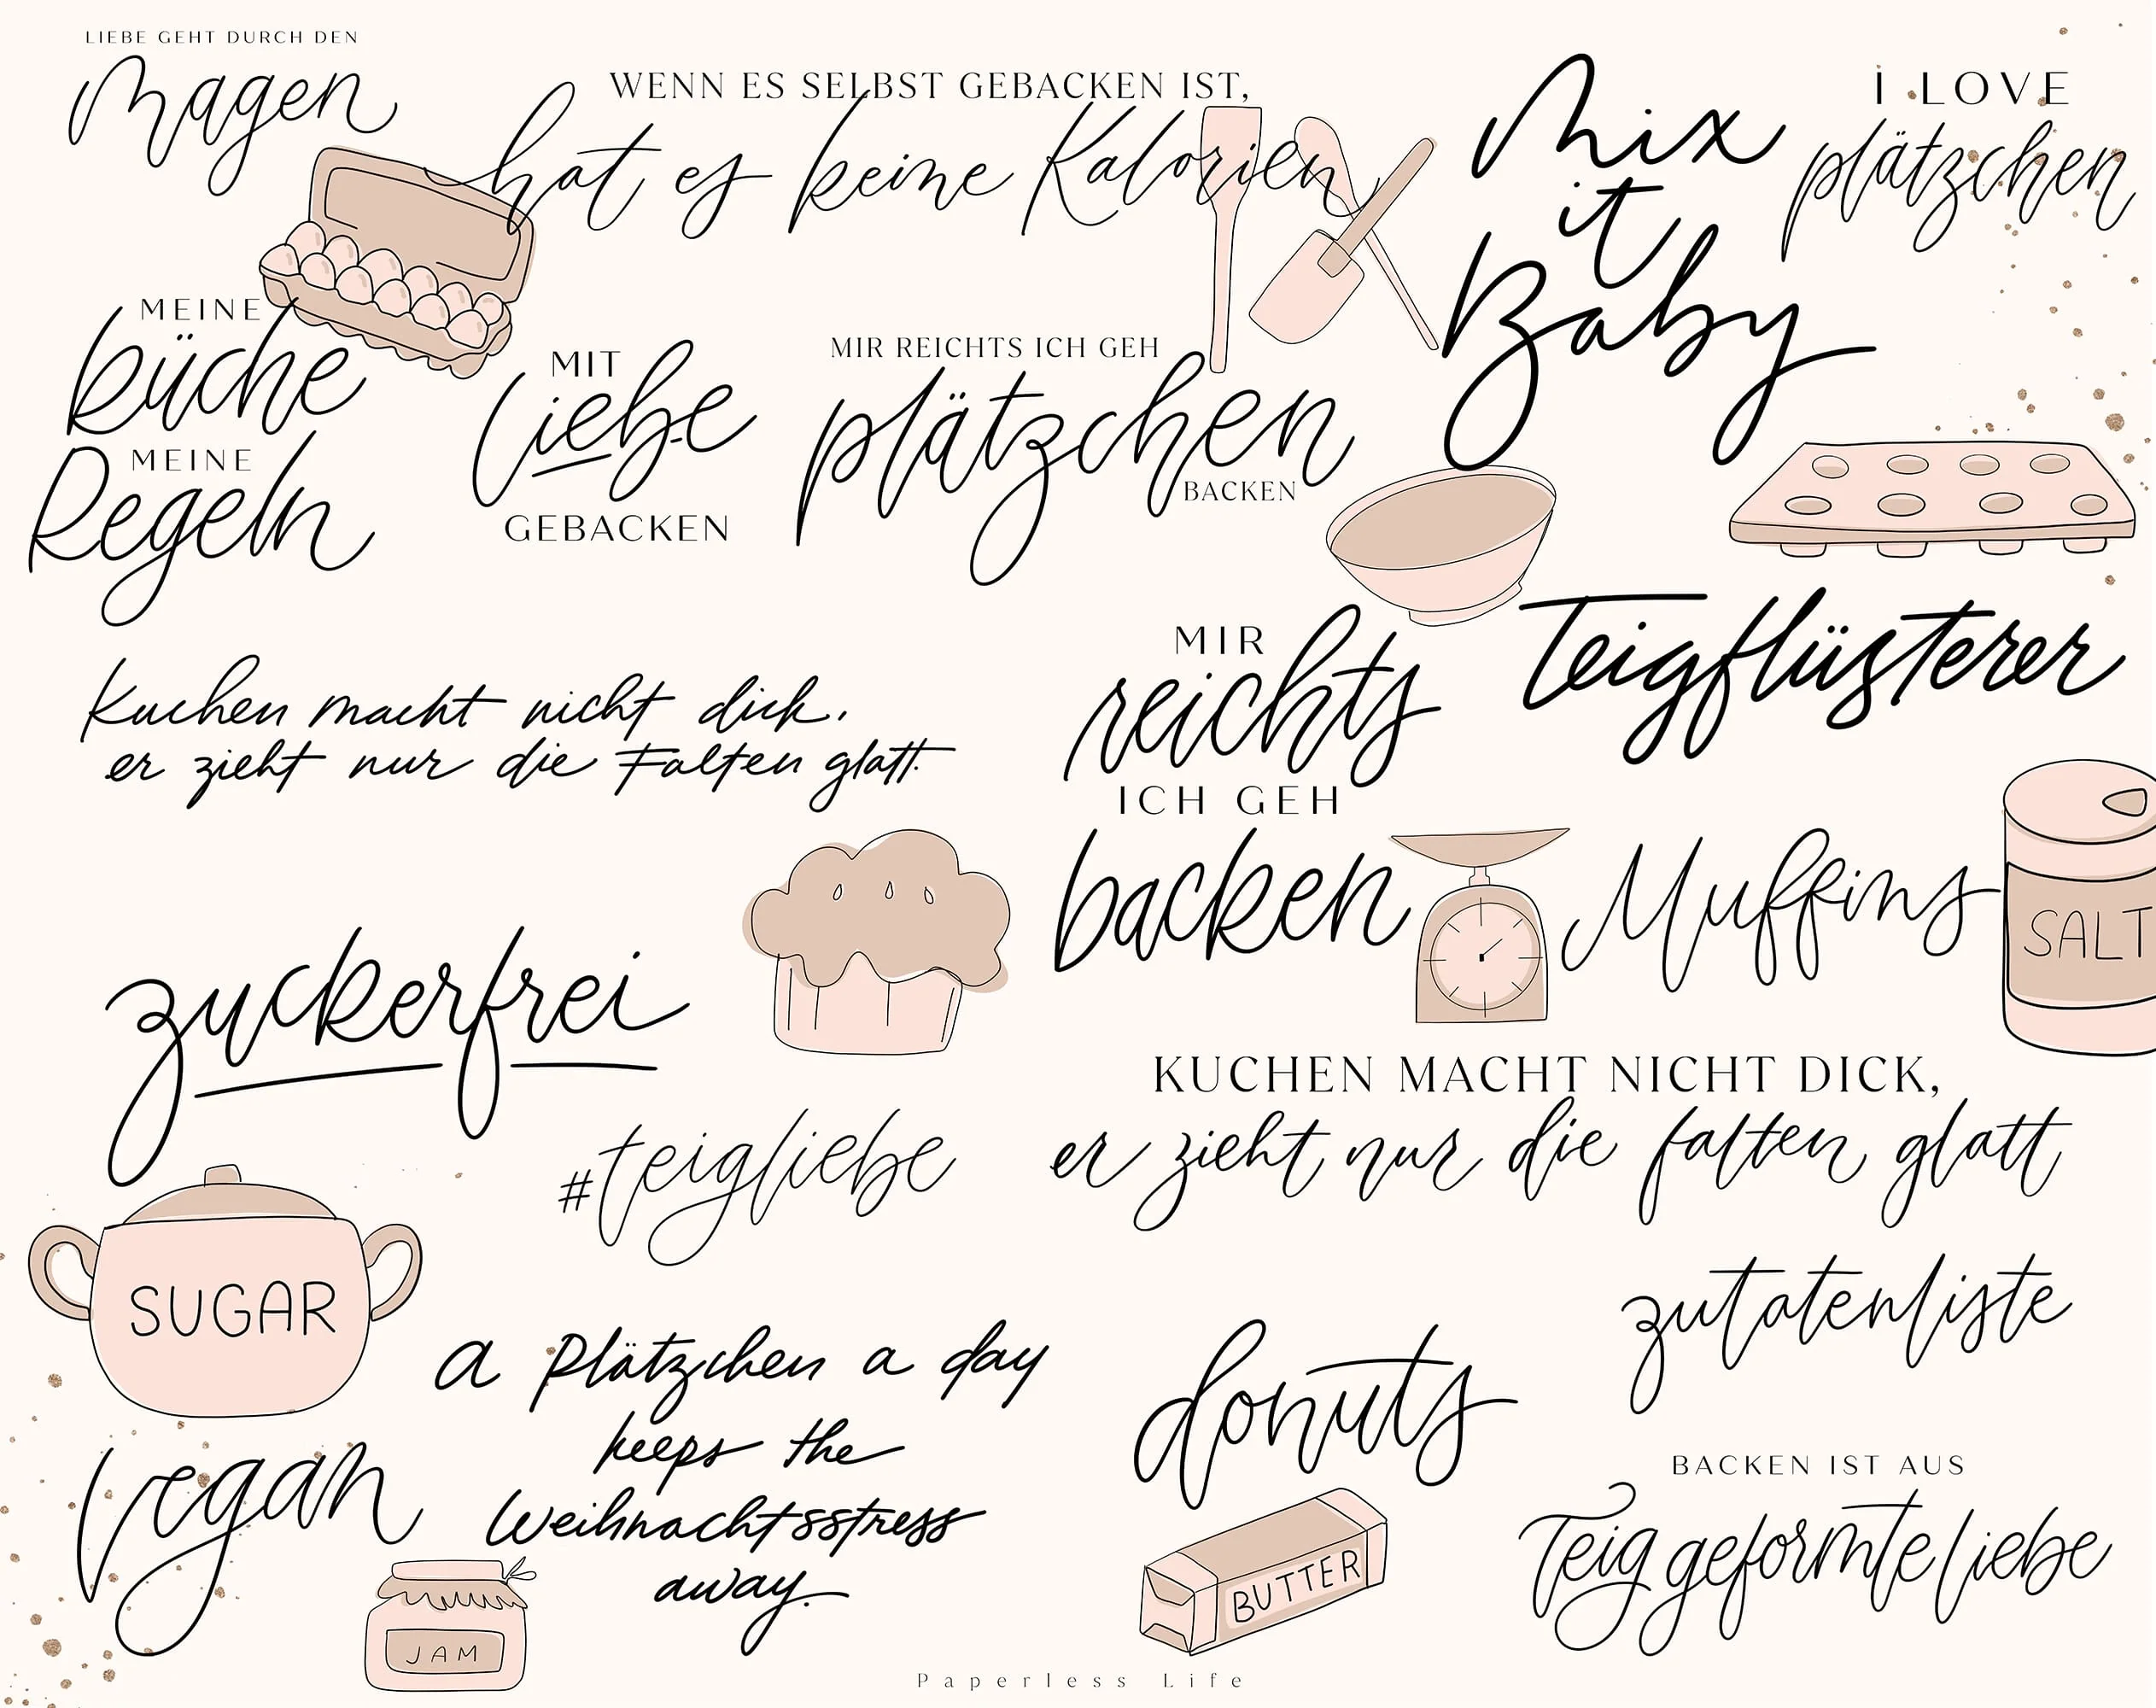 LIEBE GEHT DURCH DEN
Magen
WENN ES SELBST GEBACKEN IST,
hat es keine Kalorien
Mix
it
Baby
I LOVE
plätzchen
MEINE
küche
MEINE
Regeln
MIT
liebe
GEBACKEN
MIR REICHTS ICH GEH
plätzchen
BACKEN
Teigflüsterer
Kuchen macht nicht dick,
er zieht nur die Falten glatt.
MIR
reichts
ICH GEH
backen
Muffins
SALT
zuckerfrei
KUCHEN MACHT NICHT DICK,
er zieht nur die falten glatt
#teigliebe
SUGAR
zutatenliste
a plätzchen a day
keeps the
Weihnachtsstress
away.
donuts
vegan
BACKEN IST AUS
Teig geformte liebe
BUTTER
JAM
Paperless Life